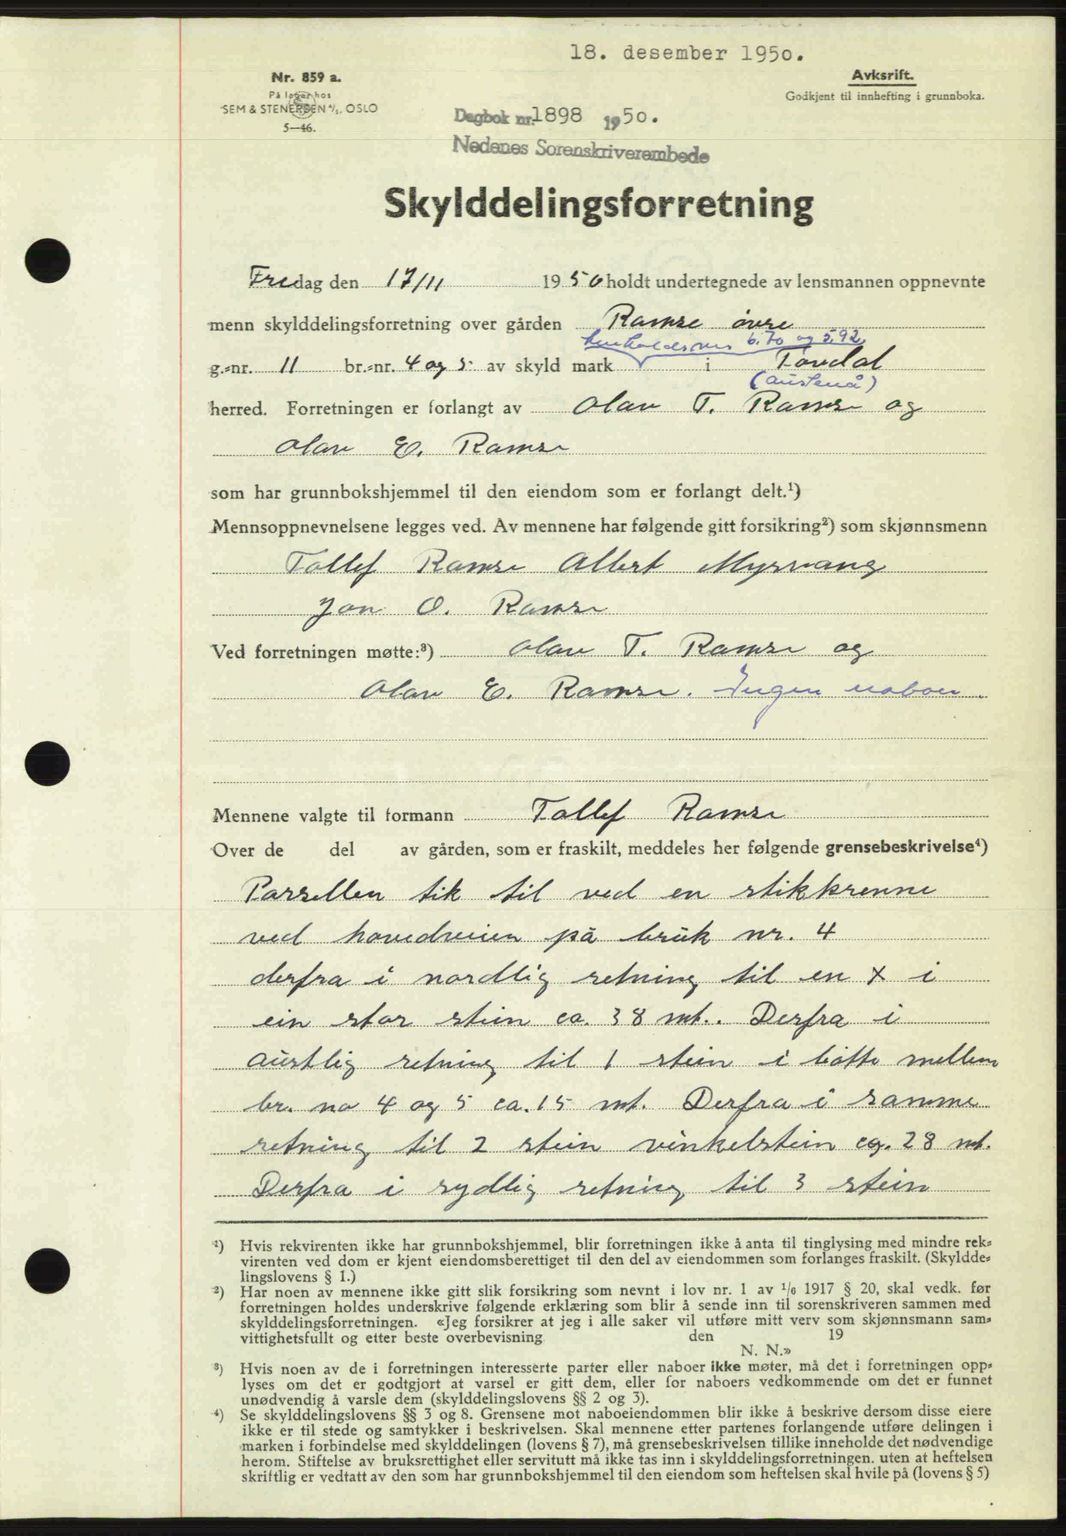 18. desember 1950.
Nr. 859 a.
På lager hos
SEM & STENERSEN A/S, OSLO
5—46.
Avksrift.
Godkjent til innhefting i grunnboka.
Dagbok nr. 1898 1950.
Nedenes Sorenskriverembede
Skylddelingsforretning
Fredag den 17/11 1950 holdt undertegnede av lensmannen oppnevnte
menn skylddelingsforretning over gården Ramse øvre
henholdsvis 6.70 og 5.92
g.-nr. 11 br.-nr. 4 og 5 av skyld mark i Tovdal
(austenå)
herred. Forretningen er forlangt av Olav T. Ramse og
Olav E. Ramse
som har grunnbokshjemmel til den eiendom som er forlangt delt.¹)
Mennsoppnevnelsene legges ved. Av mennene har følgende gitt forsikring²) som skjønnsmenn
Tallef Ramse Albert Myrvang
Jon O. Ramse
Ved forretningen møtte:³) Olav T. Ramse og
Olav E. Ramse. Ingen naboer.
Mennene valgte til formann Tallef Ramse
Over de del av gården, som er fraskilt, meddeles her følgende grensebeskrivelse⁴)
Parsellen tik til ved en stikkrenne
ved hovedveien på bruk nr. 4
derfra i nordlig retning til en x i
ein stor stein ca. 38 mt. Derfra i
austlig retning til 1 stein i bøtte mellem
br. no 4 og 5 ca. 15 mt. Derfra i samme
retning til 2 stein vinkelstein ca. 28 mt.
Derfra i sydlig retning til 3 stein
¹) Hvis rekvirenten ikke har grunnbokshjemmel, blir forretningen ikke å anta til tinglysing med mindre rek-
virenten ved dom er kjent eiendomsberettiget til den del av eiendommen som forlanges fraskilt. (Skyldde-
lingslovens § 1.)
²) Har noen av mennene ikke gitt slik forsikring som nevnt i lov nr. 1 av 1/6 1917 § 20, skal vedk. før
forretningen holdes underskrive følgende erklæring som blir å sende inn til sorenskriveren sammen med
skylddelingsforretningen. «Jeg forsikrer at jeg i alle saker vil utføre mitt verv som skjønnsmann sam-
vittighetsfullt og etter beste overbevisning den 19
N. N.»
³) Hvis noen av de i forretningen interesserte parter eller naboer ikke møter, må det i forretningen opp-
lyses om det er godtgjort at varsel er gitt dem, eller for naboers vedkommende om det er funnet
unødvendig å varsle dem (skylddelingslovens §§ 2 og 3).
⁴) Se skylddelingslovens §§ 3 og 8. Grensene mot naboeiendommen blir ikke å beskrive dersom disse eiere
ikke er til stede og samtykker i beskrivelsen. Skal mennene etter partenes forlangende utføre delingen i
marken i forbindelse med skylddelingen (lovens § 7), må grensebeskrivelsen tillike inneholde det nødvendige
herom. Stiftelse av bruksrettighet eller servitutt må ikke tas inn i skylddelingsforretningen. uten at heftelsen
skriftlig er vedtatt av den som har grunnbokshjemmel til den eiendom som heftelsen skal hvile på (lovens § 5)